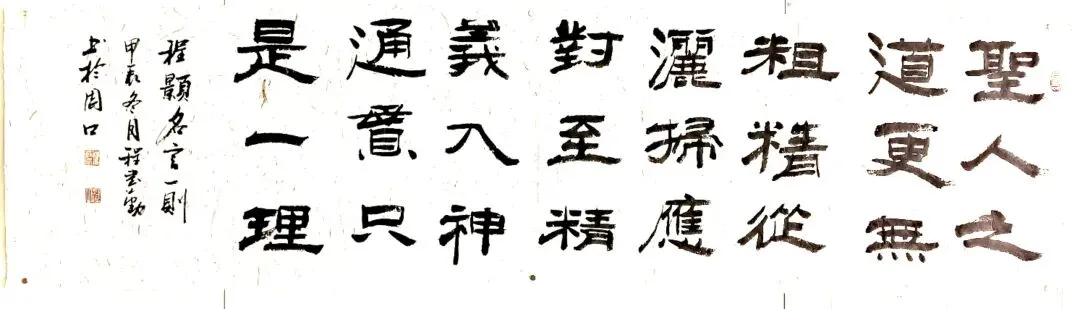 聖人之
道更無
粗精從
灑掃應
對至精
義入神
通貫只
是一理
程顥名言一則
甲辰冬月程勤
书於周口